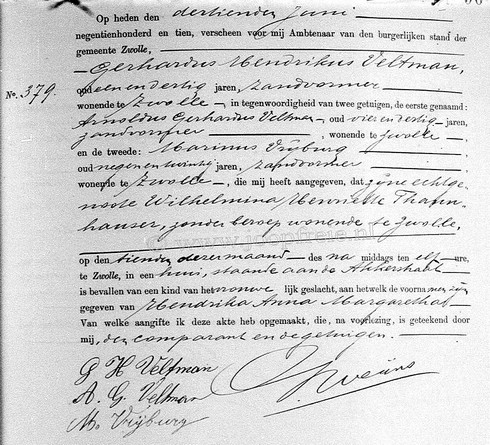 Op heden den dertienden Juni
negentienhonderd en tien, verscheen voor mij Ambtenaar van den burgerlijken stand der
gemeente Zwolle,
Gerhardus Hendrikus Veltman,
No. 379.
oud een en dertig jaren, zandvormer
wonende te Zwolle, in tegenwoordigheid van twee getuigen, de eerste genaamd:
Arnoldus Gerhardus Veltman, oud vier en dertig jaren,
zandvormer, wonende te Zwolle
en de tweede: Marinus Vrijburg
oud negen en twintig jaren, zandvormer
wonende te Zwolle, die mij heeft aangegeven, dat zijne echtge-
noote Wilhelmina Henriette Thafen-
hauser, zonder beroep wonende te Zwolle,
© www.joopfreie.nl
op den tienden dezer maand des na middags ten elf ure,
te Zwolle, in een huis, staande aan de
is bevallen van een kind van het vrouwelijk geslacht, aan hetwelk de voornamen zijn
gegeven van Hendrika Anna Margaretha
Van welke aangifte ik deze akte heb opgemaakt, die, na voorlezing, is geteekend door
mij, den comparant en de getuigen.
G H Veltman
A. G. Veltman
M. Vrijburg